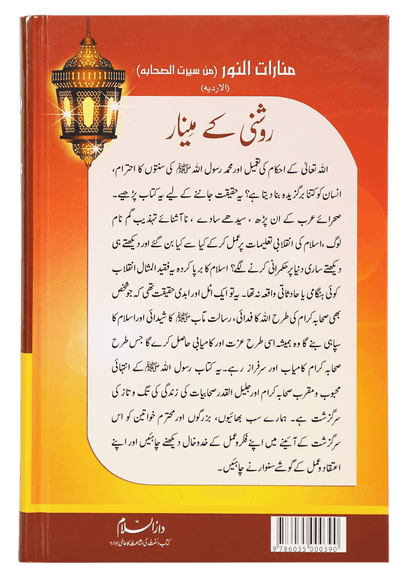 منارات النور (من سيرت الصحابه)
(الارديه)
روشنی کے مینار
اللہ تعالیٰ کے احکام کی تعمیل اور محمد رسول اللہ ﷺ کی سنتوں کا احترام،
انسان کو کتنا برگزیدہ بنا دیتا ہے؟ یہ حقیقت جاننے کے لیے یہ کتاب پڑھیے۔
صحرائے عرب کے ان پڑھ، سیدھے سادے، نا آشنائے تہذیب گم نام
لوگ، اسلام کی انقلابی تعلیمات پر عمل کر کے کیا سے کیا بن گئے اور دیکھتے ہی
دیکھتے ساری دنیا پر حکمرانی کرنے لگے؟ اسلام کا برپا کردہ یہ فقید المثال انقلاب
کوئی ہنگامی یا حادثاتی واقعہ نہ تھا۔ یہ تو ایک اٹل اور ابدی حقیقت تھی کہ جو شخص
بھی صحابہ کرام کی طرح اللہ کا فدائی، رسالت مآب ﷺ کا شیدائی اور اسلام کا
سپاہی بنے گا وہ ہمیشہ اسی طرح عزت اور کامیابی حاصل کرے گا جس طرح
صحابہ کرام کامیاب اور سرفراز رہے۔ یہ کتاب رسول اللہ ﷺ کے انتہائی
محبوب و مقرب صحابہ کرام اور جلیل القدر صحابیات کی زندگی کی تگ و تاز کی
سرگزشت ہے۔ ہمارے سب بھائیوں، بزرگوں اور محترم خواتین کو اس
سرگزشت کے آئینے میں اپنے فکر و عمل کے خد و خال دیکھنے چاہئیں اور اپنے
اعتقاد و عمل کے گوشے سنوارنے چاہئیں۔
دارالسلام
کتاب و سنت کی اشاعت کا عالمی ادارہ
9 786035 000390